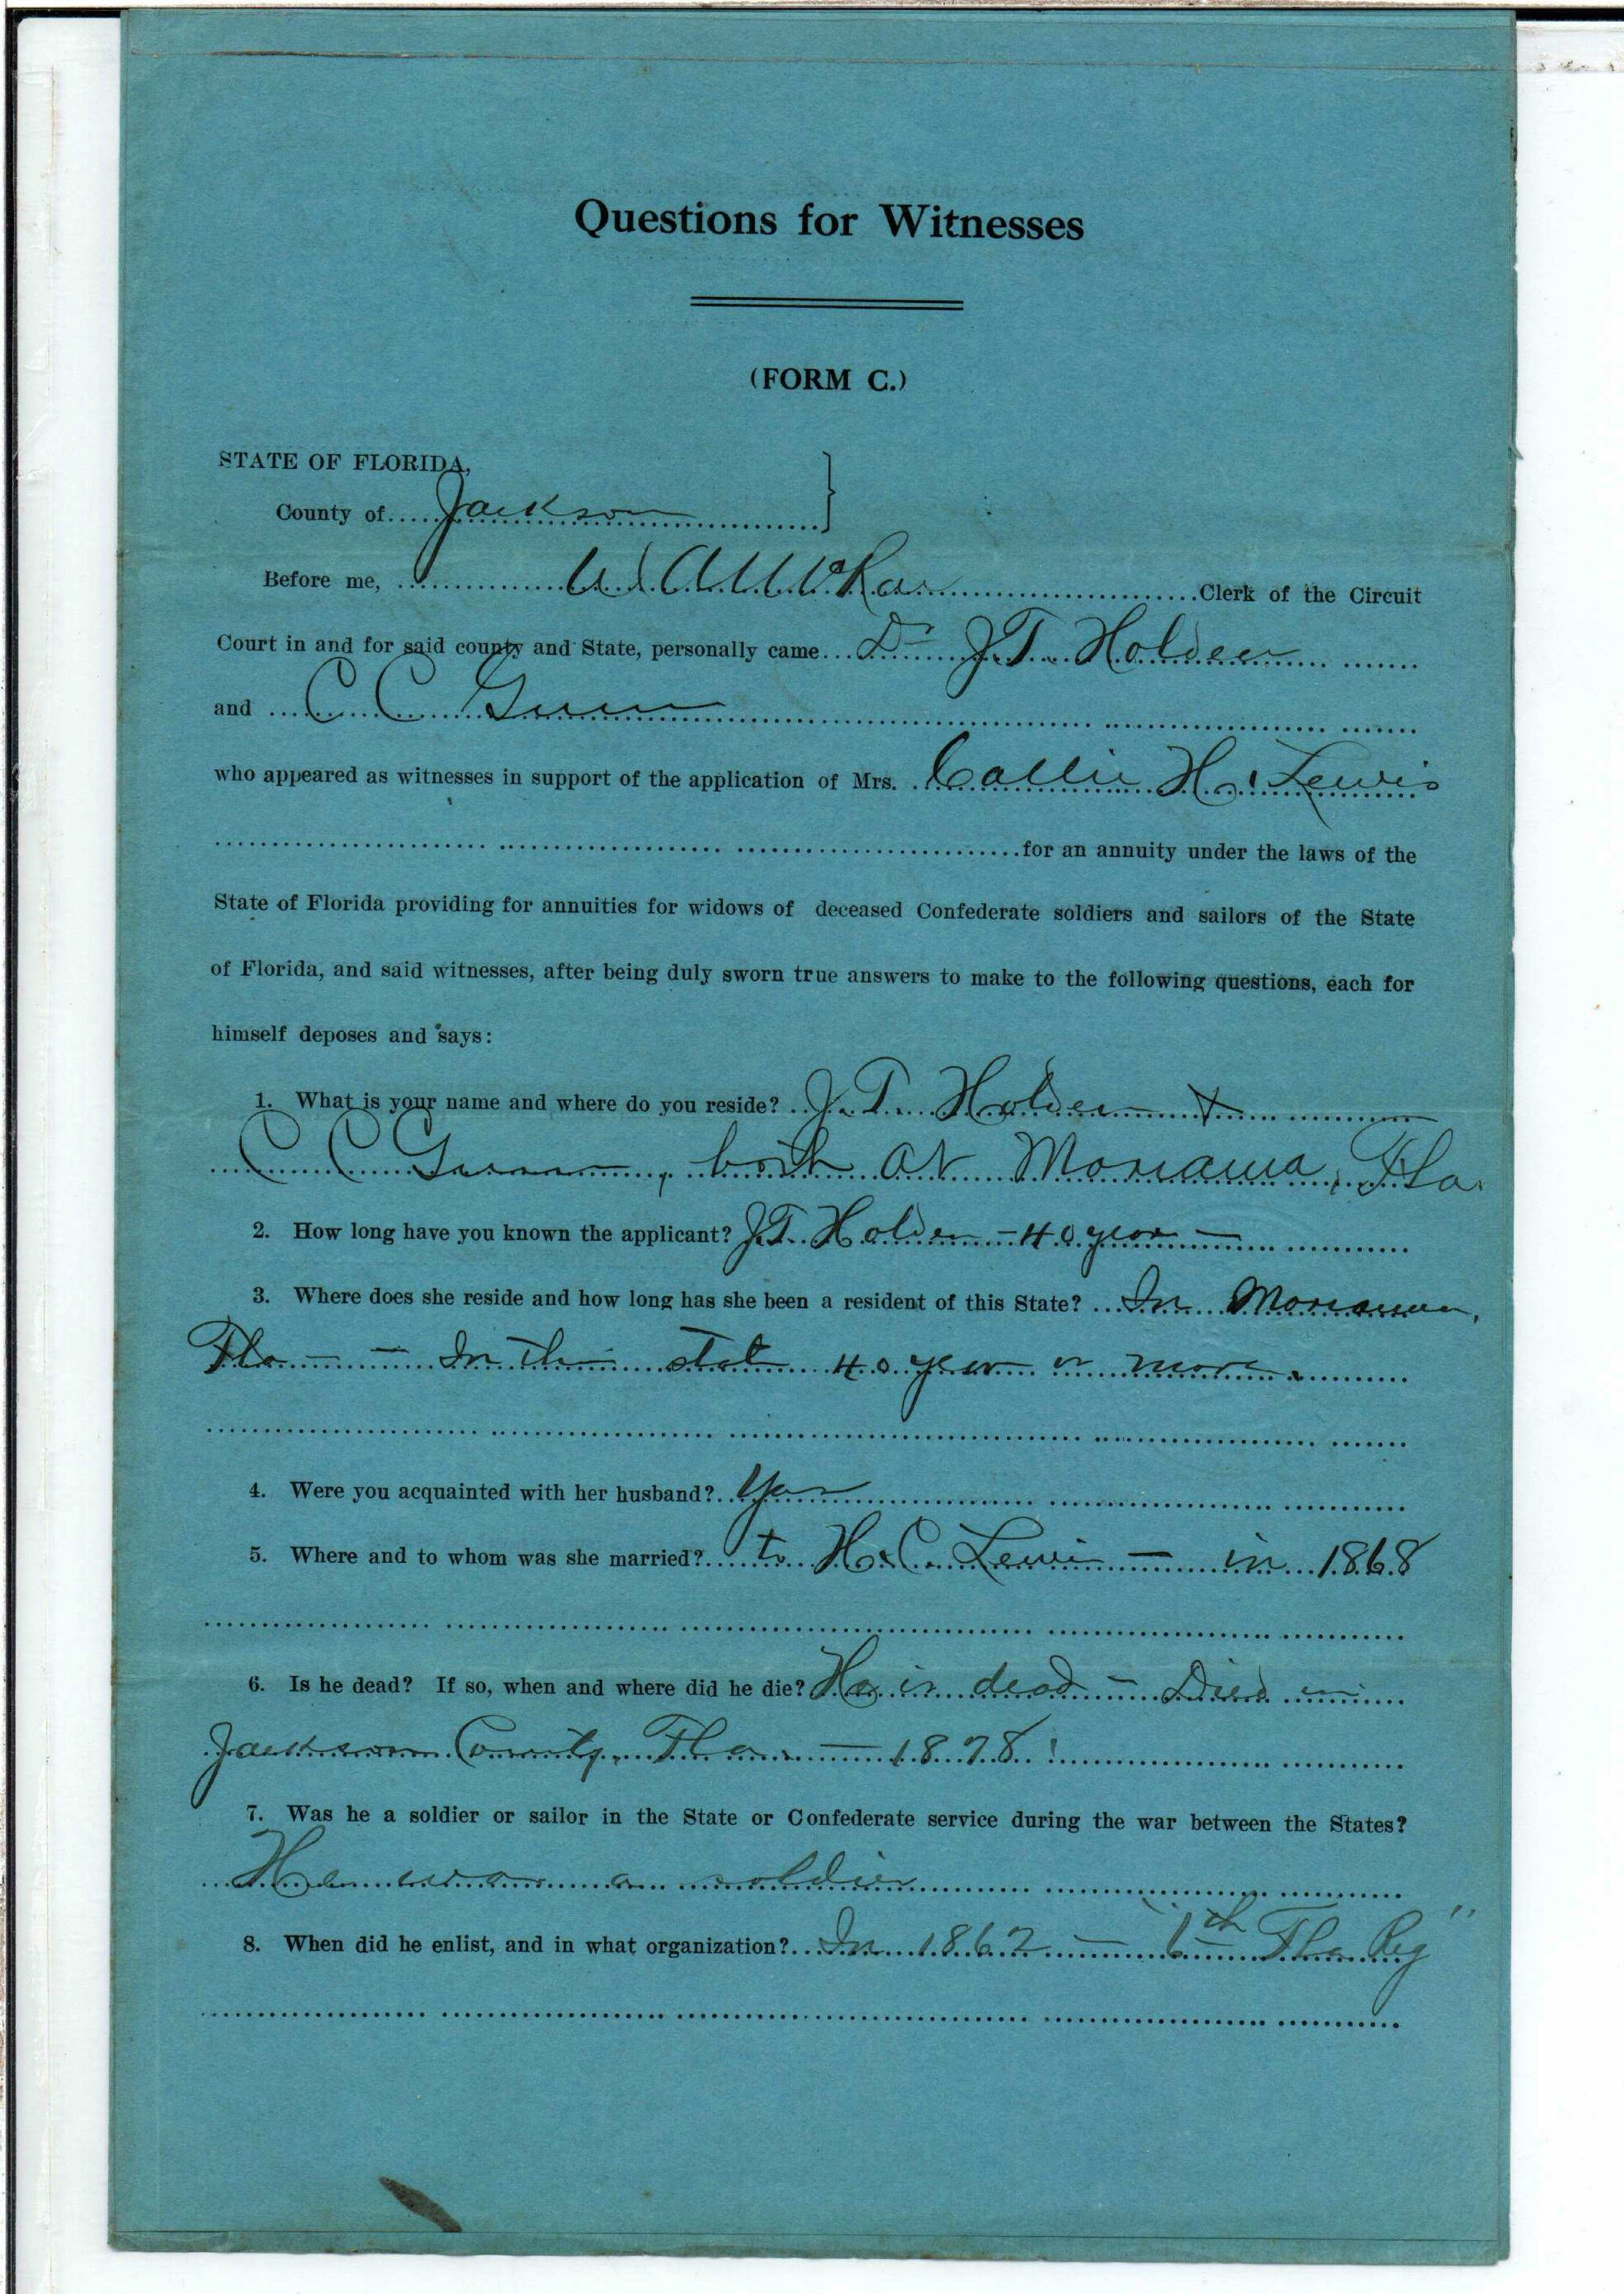 Questions for Witnesses
(FORM C.)
STATE OF FLORIDA,
County of Jackson }
Before me, Clerk of the Circuit
Court in and for said county and State, personally came Dr J.T. Holden
and C C Gunn
who appeared as witnesses in support of the application of Mrs. Callie H. Lewis
for an annuity under the laws of the
State of Florida providing for annuities for widows of deceased Confederate soldiers and sailors of the State
of Florida, and said witnesses, after being duly sworn true answers to make to the following questions, each for
himself deposes and says:
1. What is your name and where do you reside? J.T. Holden +
C C Gunn, both at Marianna, Fla.
2. How long have you known the applicant? J.T. Holden - 40 years -
3. Where does she reside and how long has she been a resident of this State? In Marianna,
Fla - - In this state 40 years or more.
4. Were you acquainted with her husband? Yes
5. Where and to whom was she married? to H. C. Lewis - in 1868
6. Is he dead? If so, when and where did he die? He is dead - Died in
Jackson County, Fla. - 1878
7. Was he a soldier or sailor in the State or Confederate service during the war between the States?
He was a soldier
8. When did he enlist, and in what organization? In 1862 - "6th Fla Reg"